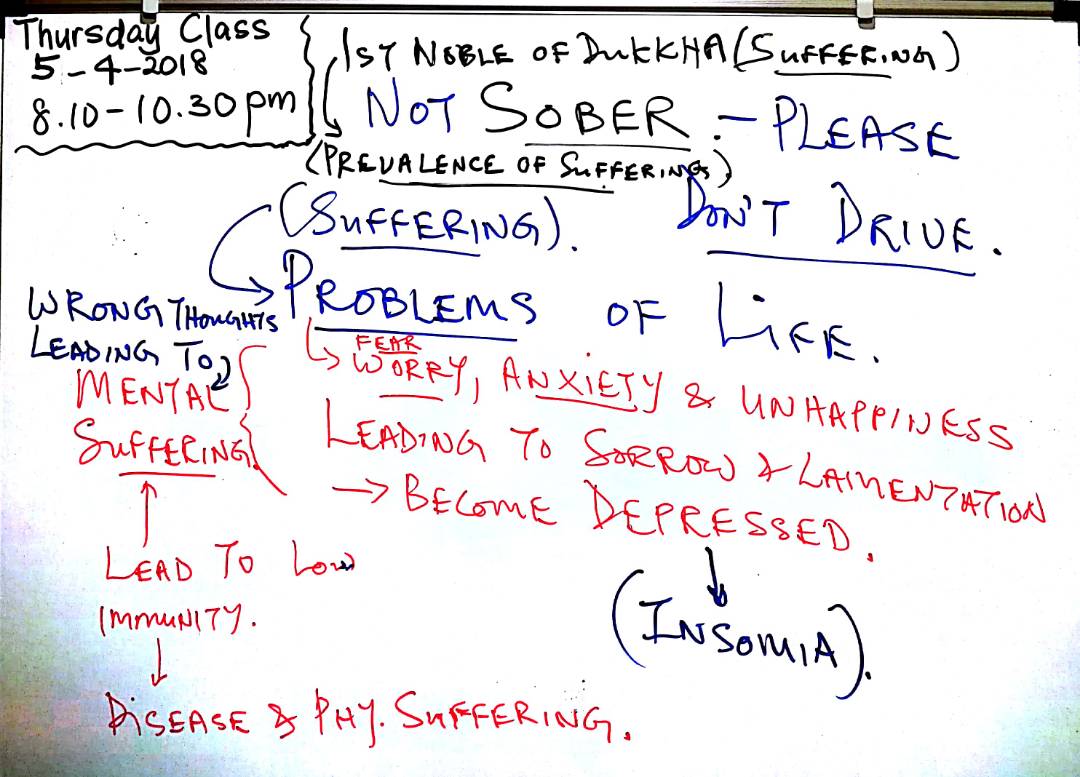 Thursday Class
5-4-2018
8.10-10.30pm
1ST NOBLE OF DUKKHA (SUFFERING)
NOT SOBER :- PLEASE
(PREVALENCE OF SUFFERINGS)
DON'T DRIVE.
(SUFFERING).
PROBLEMS OF LIFE.
WRONG THOUGHTS
LEADING TO
MENTAL
SUFFERING
FEAR
WORRY, ANXIETY & UNHAPPINESS
LEADING TO SORROW & LAMENTATION
→ BECOME DEPRESSED.
(INSOMIA).
LEAD TO LOW
IMMUNITY.
DISEASE & PHY. SUFFERING.